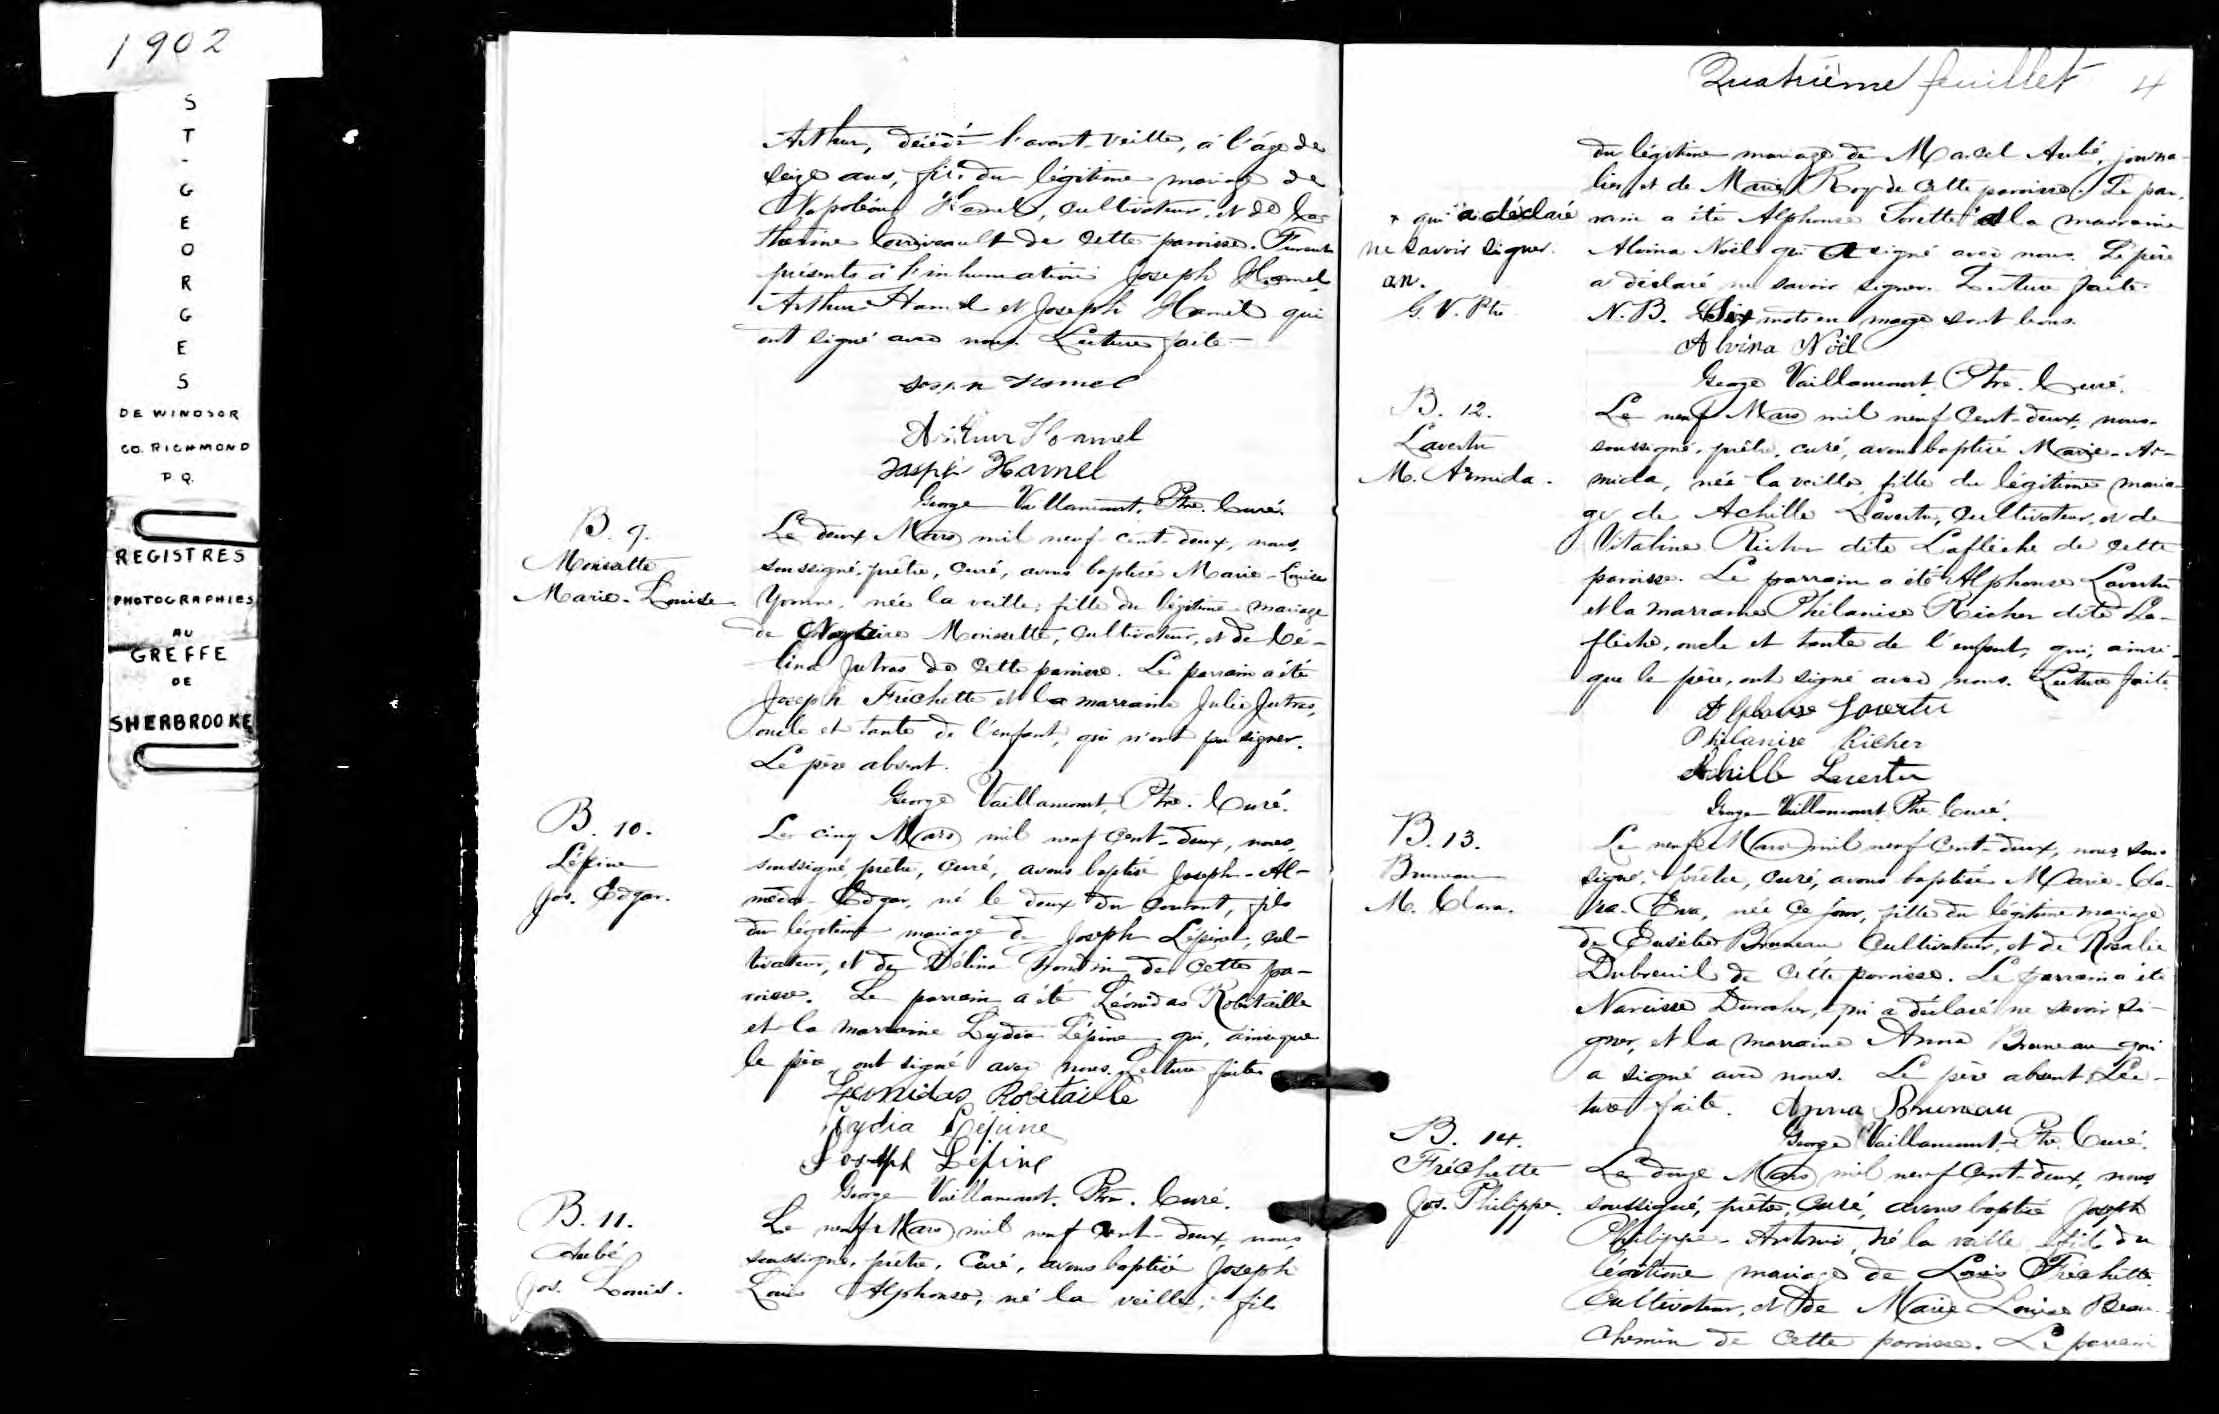 1902
ST-GEORGES
DE WINDSOR
CO. RICHMOND
P.Q.
REGISTRES
PHOTOGRAPHIES
AU
GREFFE
DE
SHERBROOKE
Arthur, décédé l'avant-veille, à l'âge de
seize ans, fils du légitime mariage de
Napoléon Hamel, cultivateur, et de Ca-
therine Lorriveault de cette paroisse. Furent
présents à l'inhumation Joseph Hamel
Arthur Hamel et Joseph Hamel qui
ont signé avec nous. Lecture faite.
Hamel
Arthur Hamel
Joseph Hamel
George Vaillancourt, Ptre. Curé.
B. 9.
Moisette
Marie-Louise
Le deux Mars mil neuf-cent-deux, nous,
soussigné, prêtre, curé, avons baptisé Marie-Louise
Yvonne, née la veille, fille du légitime mariage
de Moissette, cultivateur, et de Cé-
lina Jutras de cette paroisse. Le parrain a été
Joseph Fréchette et la marraine Julie Jutras,
oncle et tante de l'enfant, qui n'ont pu signer.
Le père absent.
George Vaillancourt, Ptre. Curé.
B. 10.
Lépine
Jos. Edgar.
Le cinq Mars mil neuf cent-deux, nous,
soussigné, prêtre, curé, avons baptisé Joseph-Al-
méda-Edgar, né le deux du courant, fils
du légitime mariage de Joseph Lépine, cul-
tivateur, et de Délina de cette pa-
roisse. Le parrain a été Léonidas Robitaille
et la marraine Lydia Lépine qui, ainsi que
le père, ont signé avec nous. Lecture faite.
Leonidas Robitaille
Lydia Lépine
Joseph Lépine
George Vaillancourt. Ptre. Curé.
B. 11.
Aubé
Jos. Louis.
Le neuf Mars mil neuf cent-deux, nous,
soussigné, prêtre, Curé, avons baptisé Joseph
Louis Alphonse, né la veille, fils
Quatrième feuillet 4
du légitime mariage de Marcel Aubé, journa-
lier et de Marie Roy de cette paroisse. Le par-
rain a été Alphonse et la marraine
x qui a déclaré
ne savoir signer.
G. V. Ptre
Alvina Noël qui a signé avec nous. Le père
a déclaré ne savoir signer. Lecture faite.
N.B. Six mots en marge sont bons.
Alvina Noël
George Vaillancourt, Ptre. Curé.
B. 12.
Lavertu
M. Armida.
Le neuf Mars mil neuf cent-deux, nous-
soussigné, prêtre, curé, avons baptisé Marie-Ar-
mida, née la veille, fille du légitime maria-
ge de Achille Lavertu, cultivateur, et de
Vitaline Richer dite Laflèche de cette
paroisse. Le parrain a été Alphonse Lavertu
et la marraine Philanise Richer dite La-
flèche, oncle et tante de l'enfant, qui, ainsi-
que le père, ont signé avec nous. Lecture faite.
Alphonse Lavertu
Philanise Richer
Achille Lavertu
George Vaillancourt, Ptre Curé.
B. 13.
Bruneau
M. Clara.
Le neuf Mars mil neuf cent-deux, nous sous-
signé, prêtre, curé, avons baptisé Marie-Cla-
ra-Eva, née ce jour, fille du légitime mariage
de Eusèbe Bruneau cultivateur, et de Rosalie
Dubreuil de cette paroisse. Le parrain a été
Narcisse Durocher, qui a déclaré ne savoir si-
gner, et la marraine Anna Bruneau qui
a signé avec nous. Le père absent. Lec-
ture faite. Anna Bruneau
George Vaillancourt, Ptre. Curé.
B. 14.
Fréchette
Jos. Philippe.
Le douze Mars mil neuf cent-deux, nous
soussigné, prêtre, curé, avons baptisé Joseph
Philippe-Antonio, né la veille, fils du
légitime mariage de Louis Fréchette,
Cultivateur, et de Marie Louise Beau-
chemin de cette paroisse. Le parrain